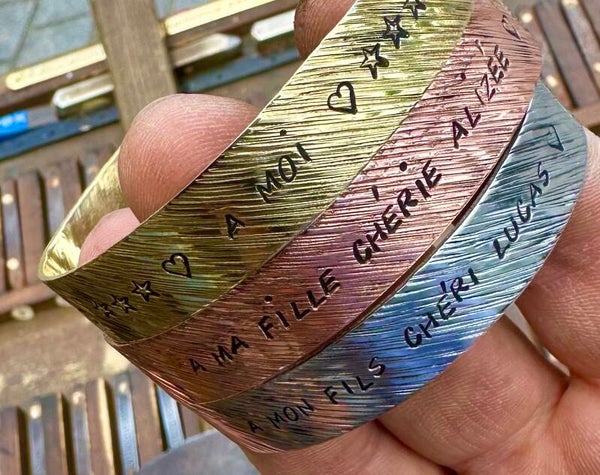 A MOI
A MA FILLE CHÉRIE ALIZÉE
A MON FILS CHÉRI LUCAS